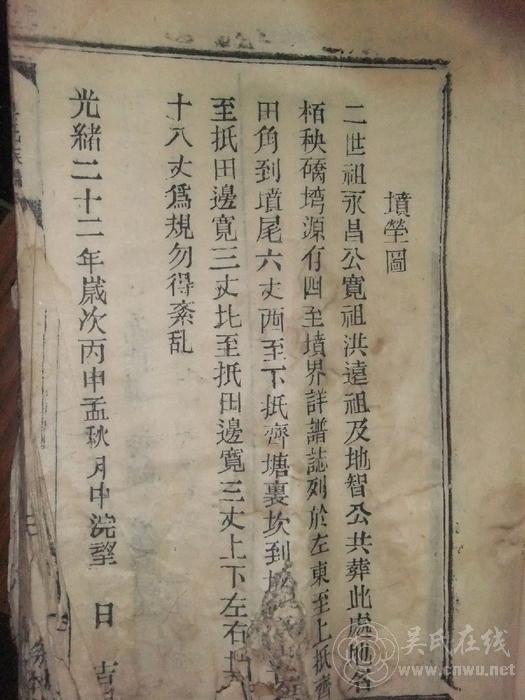 墳塋圖
二世祖永昌公寬祖洪遠祖及地智公共葬此處地名
栢秧礄塆源有四至墳界詳譜誌列於左東至上抵齊
田角到墳尾六丈西至下抵齊塘裏坎到
至抵田邊寬三丈北至抵田邊寬三丈上下左右
十八丈爲規勿得紊乱
光緒二十二年歲次丙申孟秋月中浣望 日 吉
吴氏在线
www.cnwu.net